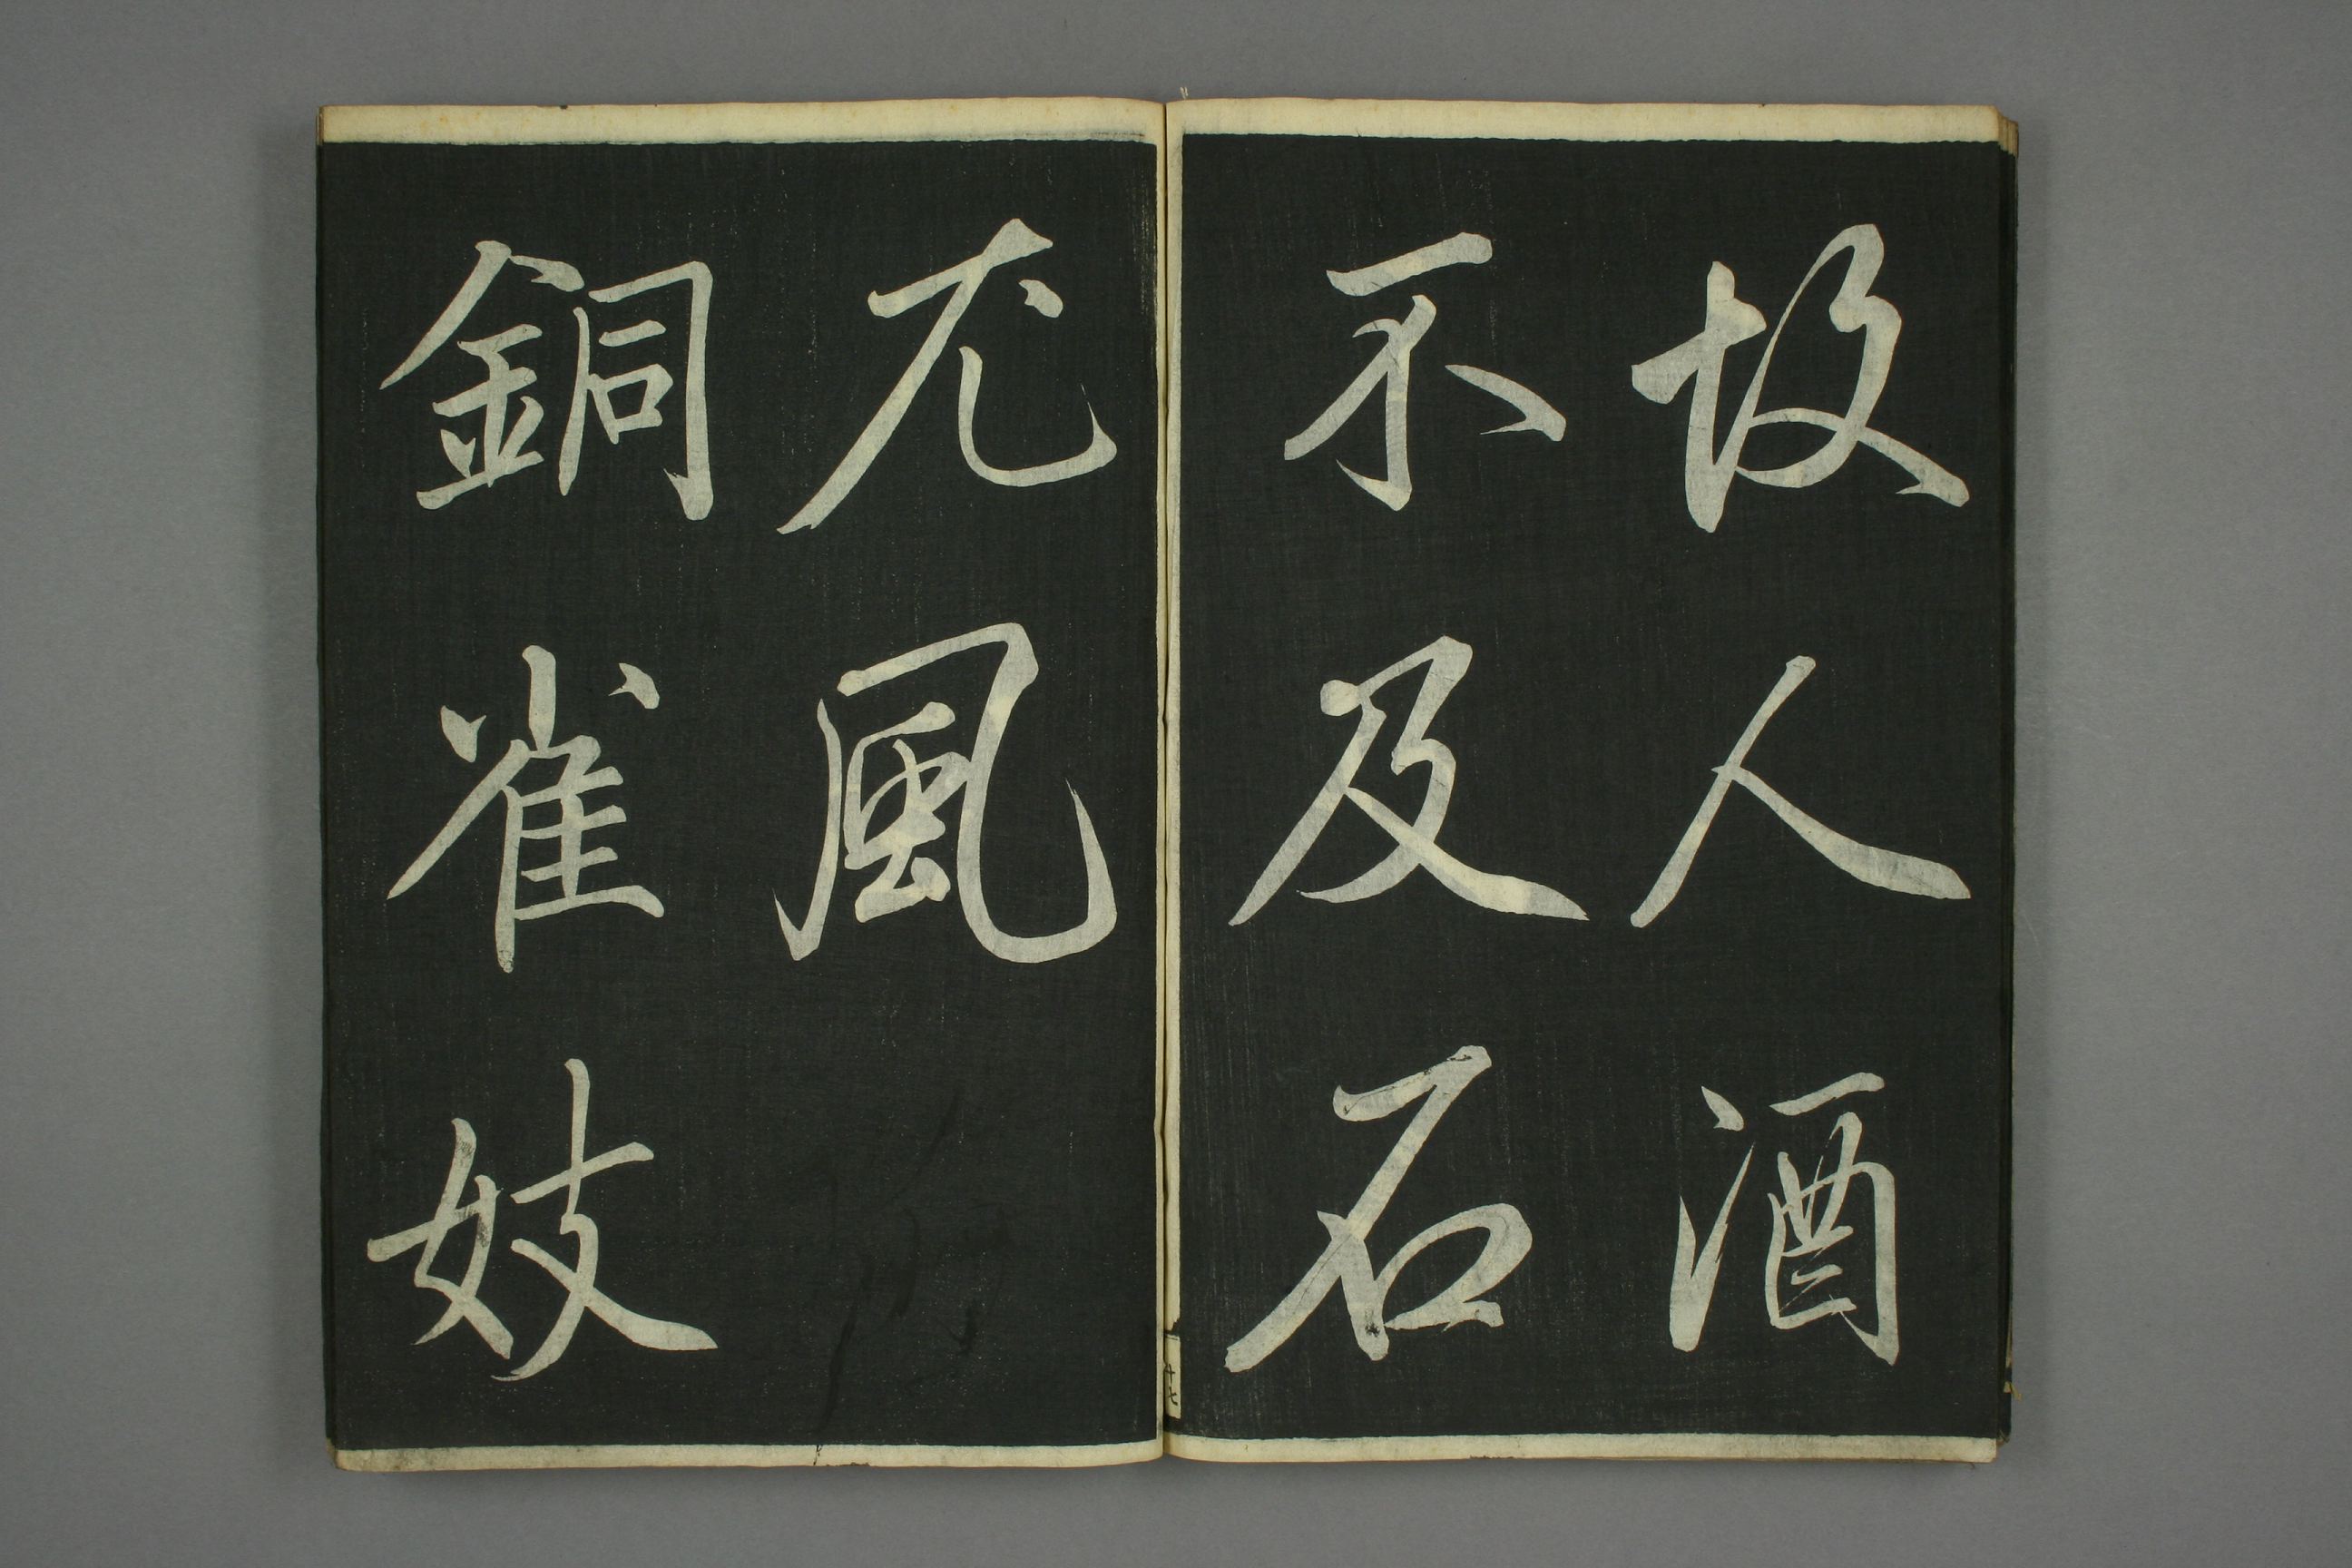 故人酒
不及石
尤風
銅雀妓
十七